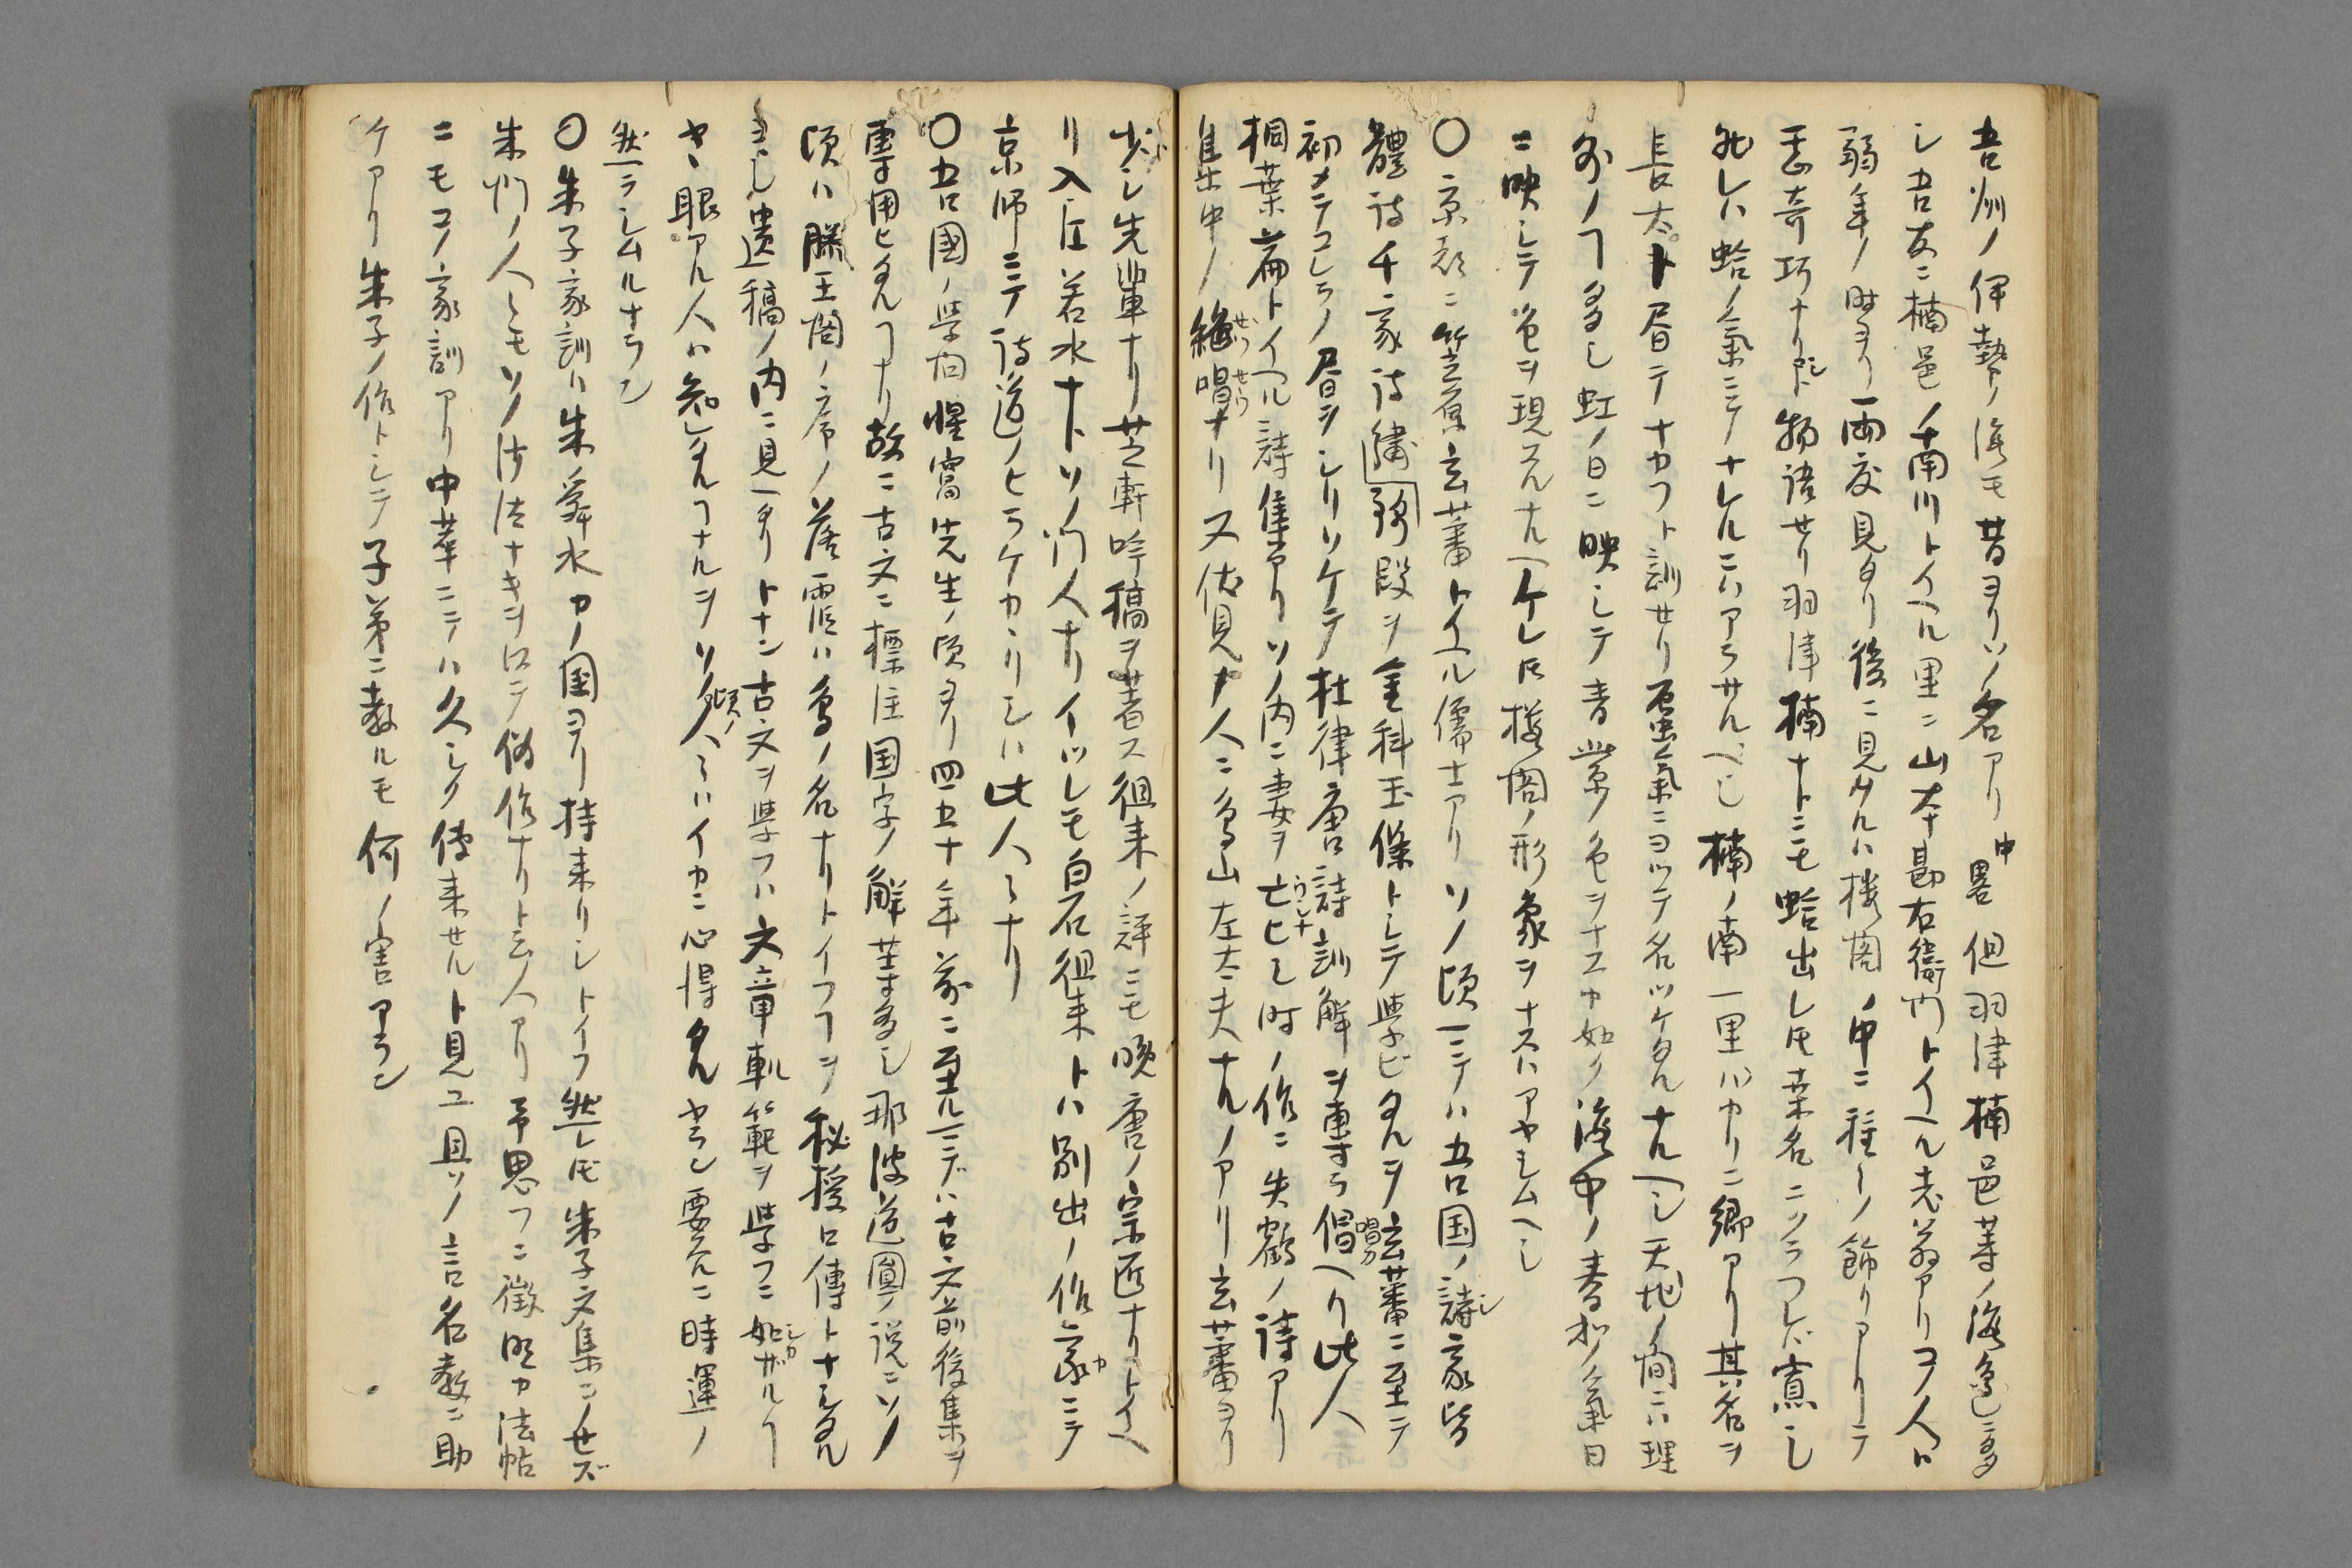 吾洲ノ伊勢ノ海モ昔ヨリソノ名アリ中畧但羽津楠邑等ノ海邊ニ多
シ吾友ニ楠邑ノ南川トイヘル里ニ山本勘右衛門トイヘル老翁アリコノ人ハ
弱年ノ時ヨリ一両度見タリ後ニ見タルハ楼閣ノ中ニ種々ノ飾リアリテ
至奇巧ナリシト物語セリ羽津楠ナトニモ蛤出レ𪜈桒名ニツラフレバ寡シ
然レハ蛤ノ氣ニテナレルニハアラサルヘシ楠ノ南一里ハカリニ郷アリ其名ヲ
長太ト書テナカフト訓セリ蜃氣ニヨツテ名ツケタルナルヘシ天地ノ間ニハ理
外ノヿ多シ虹ノ日ニ映シテ青紫ノ色ヲナスカ如ク海中ノ春和ノ氣日
ニ映シテ色ヲ現スルナルヘケレ𪜈楼閣ノ形象ヲナスハアヤシムヘシ
〇京都ニ笠原玄蕃トイヘル儒士アリソノ頃マテハ吾国ノ詩家皆
體詩千家詩繍錦段ヲ金科玉條トシテ學ビタルヲ玄蕃ニ至テ
初メテコレラノ書ヲシリソケテ杜律唐詩訓解ヲ専ラ倡ヘリ此人
桐葉篇トイヘル詩集アリソノ内ニ妻ヲ亡ヒシ時ノ作ニ失鶴ノ詩アリ
集中ノ絶唱ナリ又伏見ノ人ニ鳥山左太夫ナルノアリ玄蕃ヨリ
少シ先輩ナリ芝軒吟稿ヲ著ス徂来ノ評ニモ晩唐ノ宗匠ナリトイヘ
リ入江若水ナトソノ門人ナリイツレモ白石徂来トハ別出ノ作家ニテ
京師ニテ詩道ノヒラケカヽリシハ此人々ナリ
〇吾國ノ學問惺窩先生ノ頃ヨリ四五十年前ニ至ルマデハ古文前後集ヲ
専用ヒタルヿナリ故ニ古文ニ標注国字ノ解等多シ那波道圓ノ説ニソノ
頃ハ滕王閣ノ序ノ落霞ハ鳥ノ名ナリトイフヿヲ秘授口傳トナシタル
ヨシ遺稿ノ内ニ見ヘタリトナン古文ヲ學フハ文章軌範ヲ學フニ如ザルヿ
ヤヽ眼アル人ハ知レタルヿナルヲソノ頃ノ人々ハイカニ心得タルヤラン要スルニ時運ノ
然ラシムルナラン
〇朱子家訓ハ朱舜水カノ国ヨリ持来リシトイフ然レ𪜈朱子文集ニノセズ
朱門ノ人々モソノ沙汰ナキヲ以テ偽作ナリト云人アリ予思フニ徴明カ法帖
ニモコノ家訓アリ中華ニテハ久シク傳来セルト見ユ且ソノ言名教ニ助
ケアリ朱子ノ作トシテ子弟ニ教ルモ何ノ害アラン